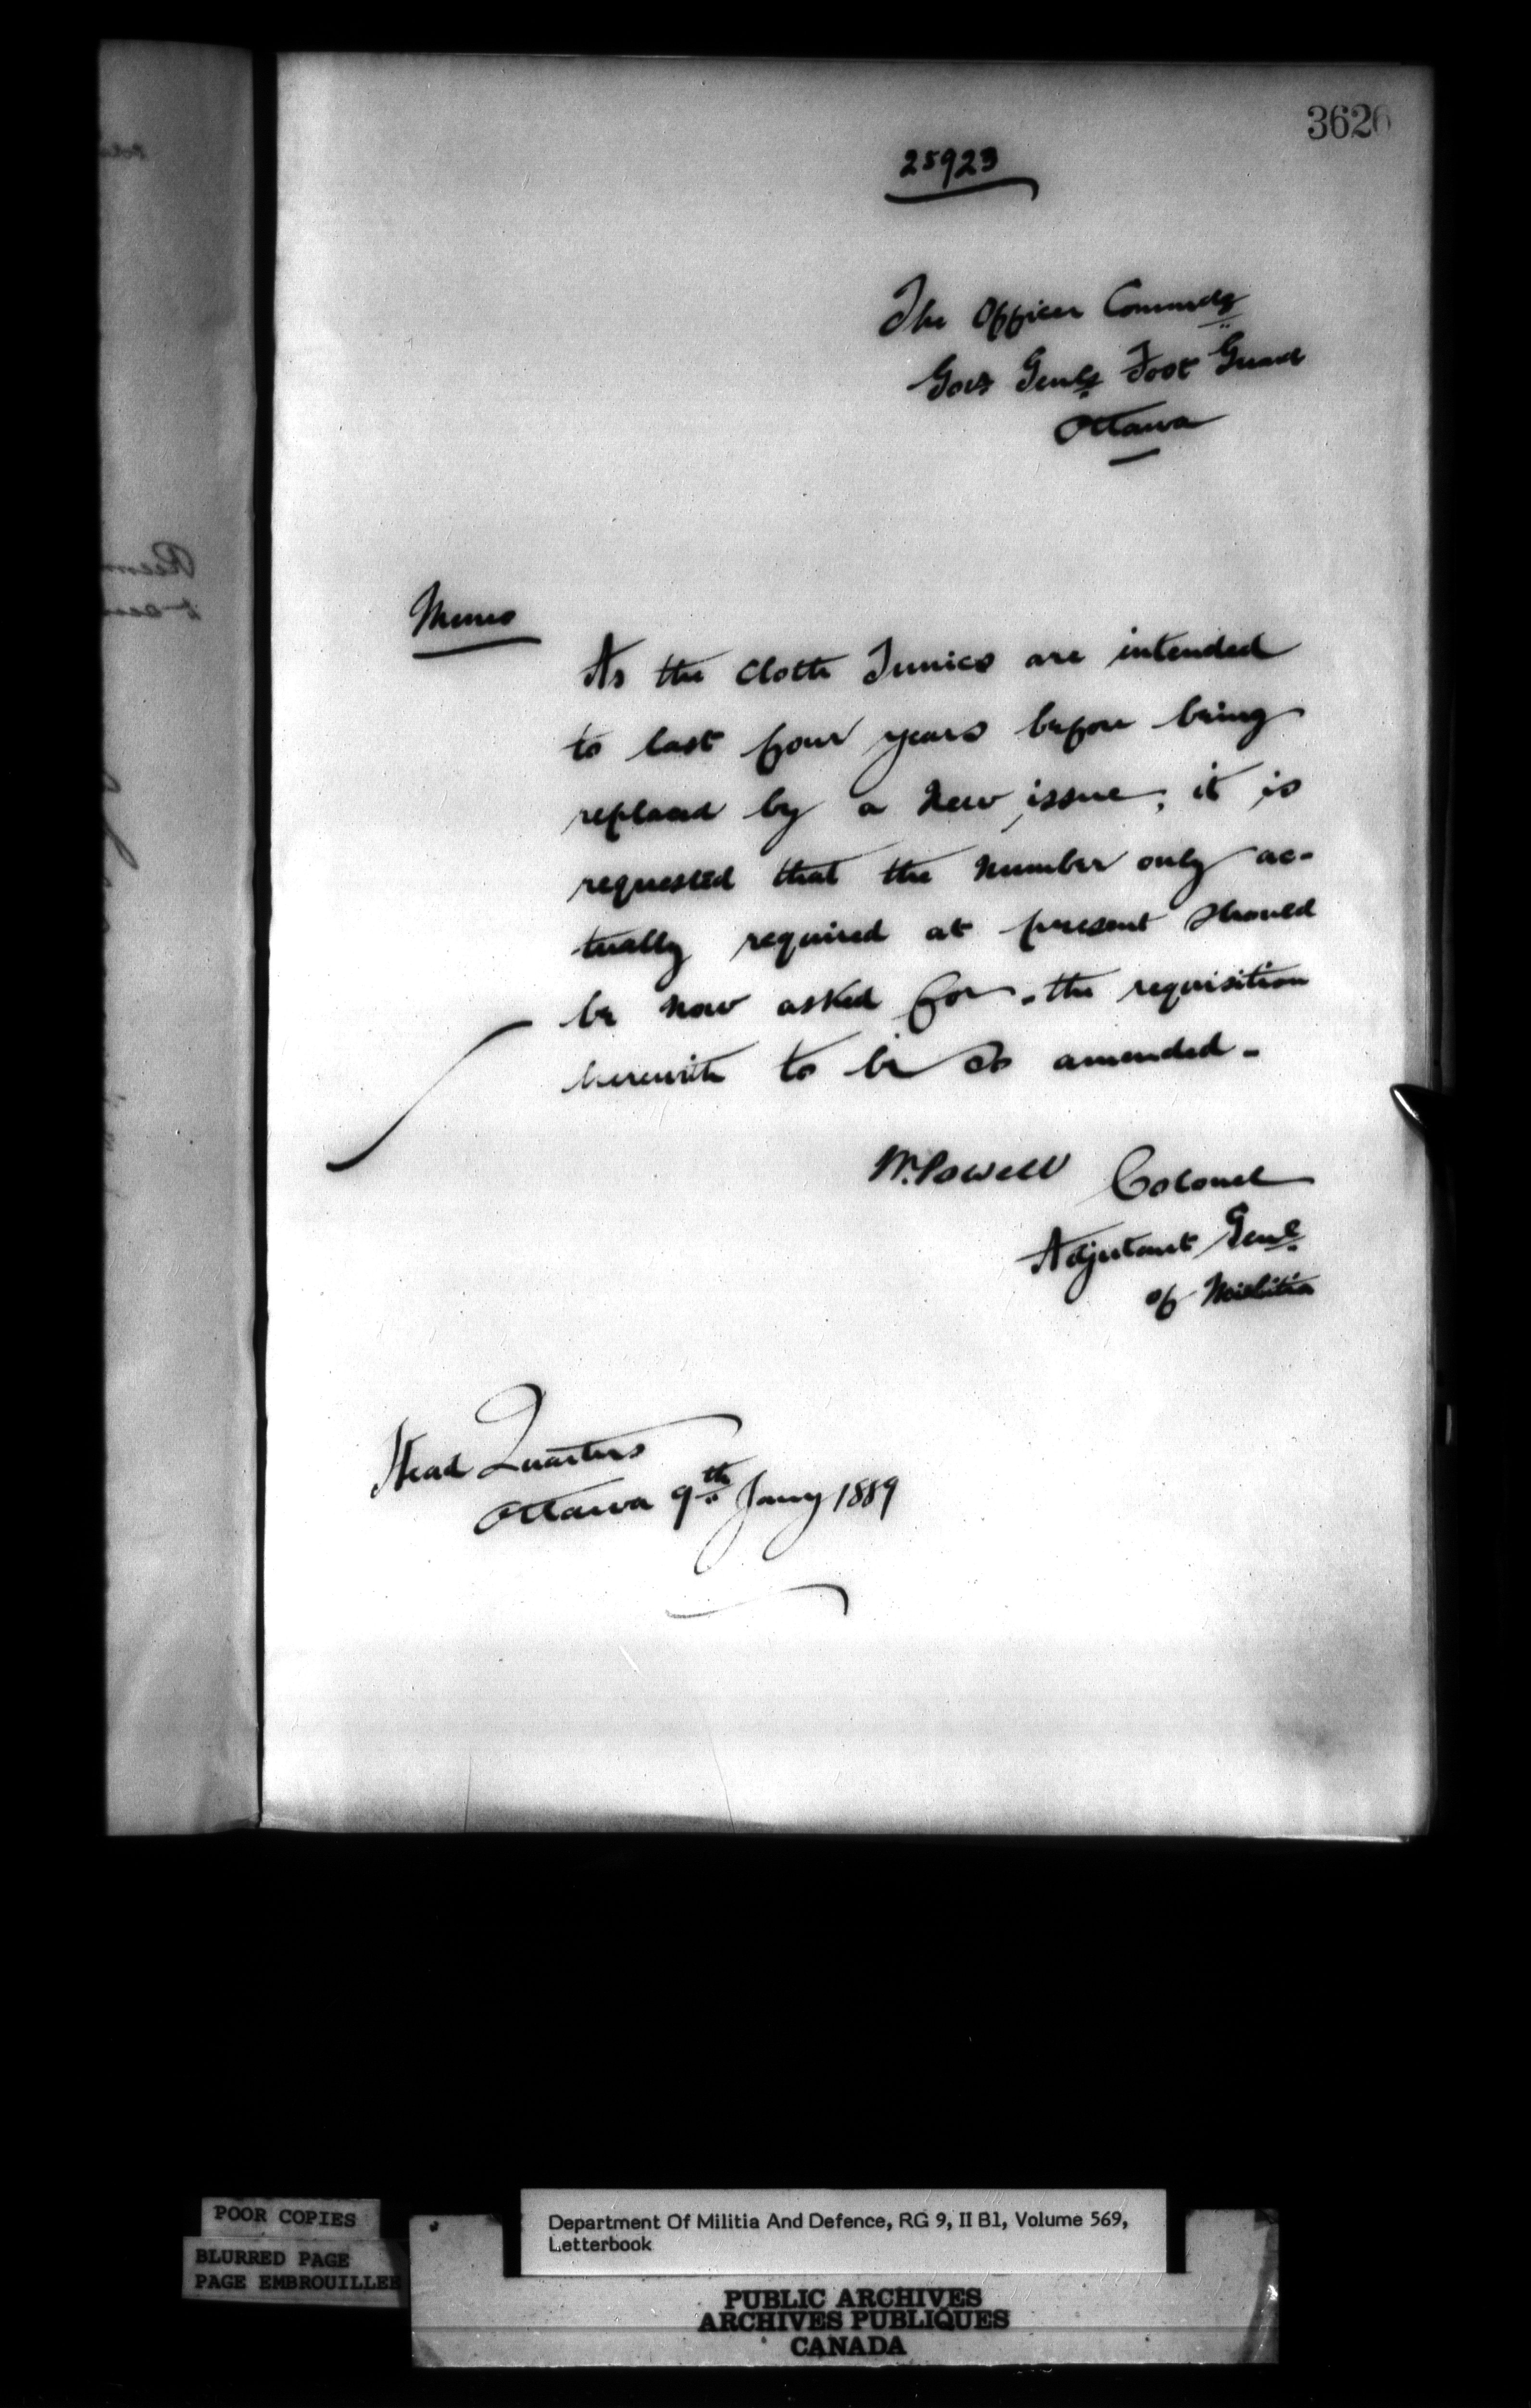 3620
25923
The Officer Commdg
Gov Genls Foot Guard
Ottawa
Memo
As the Cloth Tunics are intended
to last four years before being
replaced by a new issue, it is
requested that the number only ac-
tually required at present should
be now asked for. the requisition
herewith to be so amended -
W. Powell Colonel
Adjutant Genl
of Militia
Head Quarters
Ottawa 9th Jany 1889
POOR COPIES
BLURRED PAGE
PAGE EMBROUILLEE
Department Of Militia And Defence, RG 9, II B1, Volume 569,
Letterbook
PUBLIC ARCHIVES
ARCHIVES PUBLIQUES
CANADA